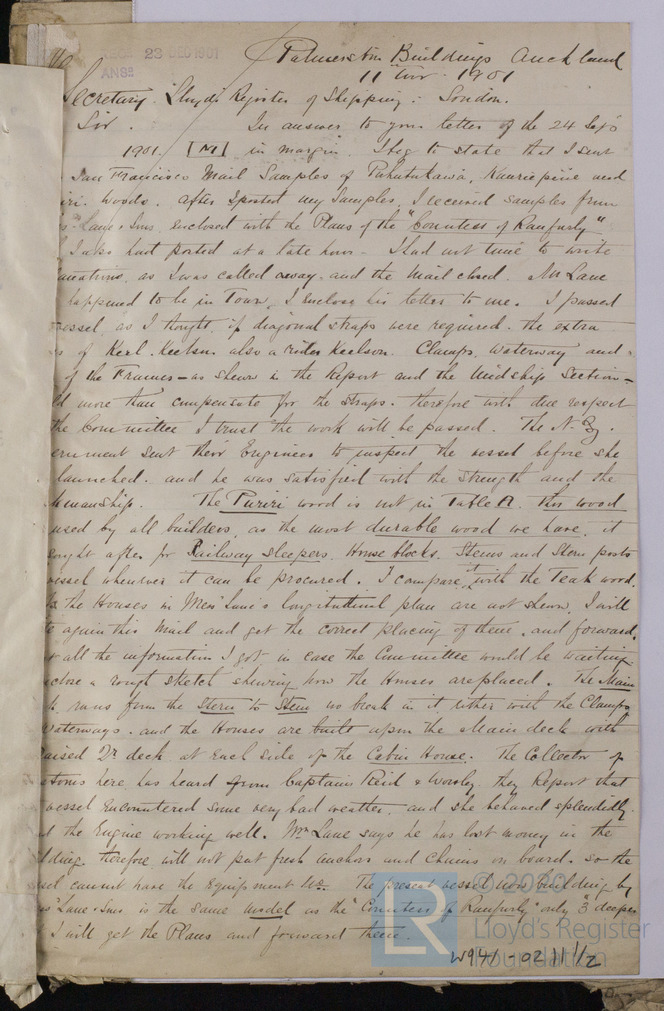 REC'D 23 DEC 1901
ANSD
Palmerston Buildings Auckland
11 Nov. 1901
Secretary. Lloyds Register of Shipping:- London.
Sir. In answer to your letter of the 24 Sep's
1901 [M] in margin. I beg to state that I sent
San Francisco Mail Samples of Pohutukawa, Kauri pine and
iri. woods. after I posted my samples, I received samples from
Lane & Sons, enclosed with the Plans of the "Countess of Ranfurly"
I also had posted at a late hour. I had not time to write
anations, as I was called away. and the Mail closed. Mr Lane
happened to be in Town, I enclose his letter to me. I passed
vessel, as I thought, if diagonal straps were required. the extra
of Keel. Keelson also a rider Keelson. Clamps, waterway and
of the Frames - as shewn in the Report and the Midship Section -
ld more than compensate for the straps. therefore with due respect
the Committee I trust the work will be passed. The N. Z.
ernment sent their Engineer to inspect the vessel before she
launched. and he was satisfied with the strength and the
kmanship. The Puriri wood is not in Table A. this wood
used by all builders, as the most durable wood we have. it
ought after for Railway sleepers. House blocks. Stems and Stern posts
vessel whenever it can be procured. I compare it with the Teak wood.
As the Houses in Mess Lane's longitudinal plan are not shewn. I will
te again this mail and get the correct placing of them, and forward,
all the information I got in case the Committee would be waiting
close a rough sketch shewing how the Houses are placed. The Main
k runs from the Stern to Stem no break in it either with the Clamps
Waterways. and the Houses are built upon the Main deck with
raised Qr deck at each side of the Cabin House. The Collector of
stoms here has heard from Captain Reid & Worsley. they Report that
vessel encountered some very bad weather. and she behaved splendidly
d the Engine working well. Mr Lane says he has lost money in the
lding. therefore will not put fresh anchors and chains on board. so the
sel cannot have the Equipment No. The present vessel now building by
Lane & Sons is the same model as the "Countess of Ranfurly" only 3" deeper
I will get the Plans and forward them.
W941-0211 1/2
© 2020
LR
Lloyd's Register
Foundation